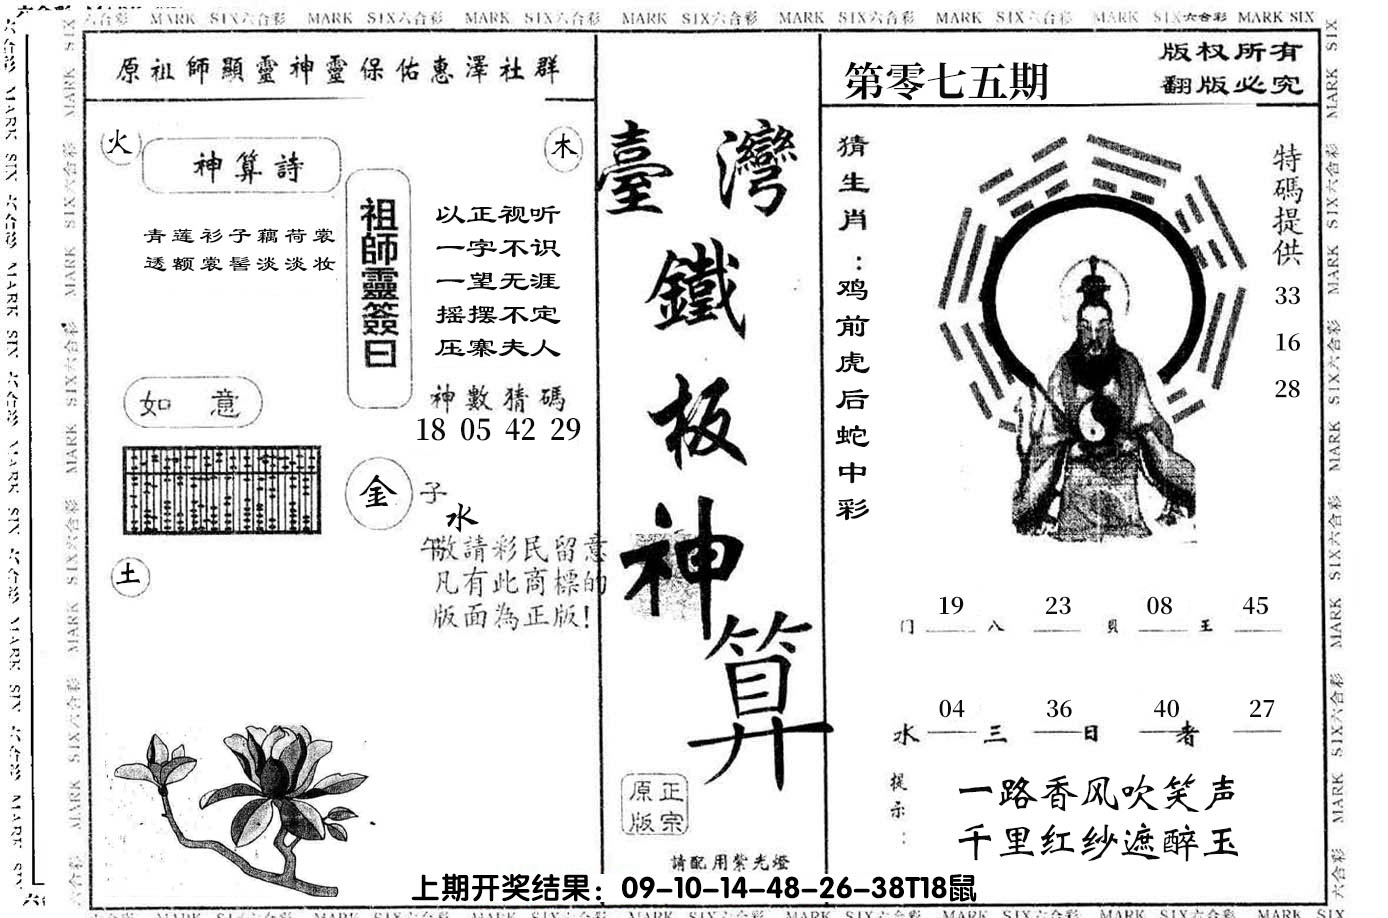 MARK SIX六合彩 MARK SIX六合彩 MARK SIX六合彩 MARK SIX六合彩 MARK SIX六合彩 MARK SIX六合彩 MARK SIX六合彩 MARK SIX
原祖師顯靈神靈保佑惠澤社群
火
木
神算詩
青莲衫子藕荷裳
透额裳髻淡淡妆
祖師靈簽曰
以正视听
一字不识
一望无涯
摇摆不定
压寨夫人
神數猜碼
18 05 42 29
如意
金
子
水
午
敬請彩民留意
凡有此商標的
版面為正版!
土
臺灣
鐵
板
神
算
正宗
原版
請配用紫光燈
第零七五期
版权所有
翻版必究
猜生肖:鸡前虎后蛇中彩
特碼提供
33
16
28
门 19 八 23 貝 08 王 45
水 04 三 36 日 40 者 27
提示:
一路香风吹笑声
千里红纱遮醉玉
上期开奖结果:09-10-14-48-26-38T18鼠